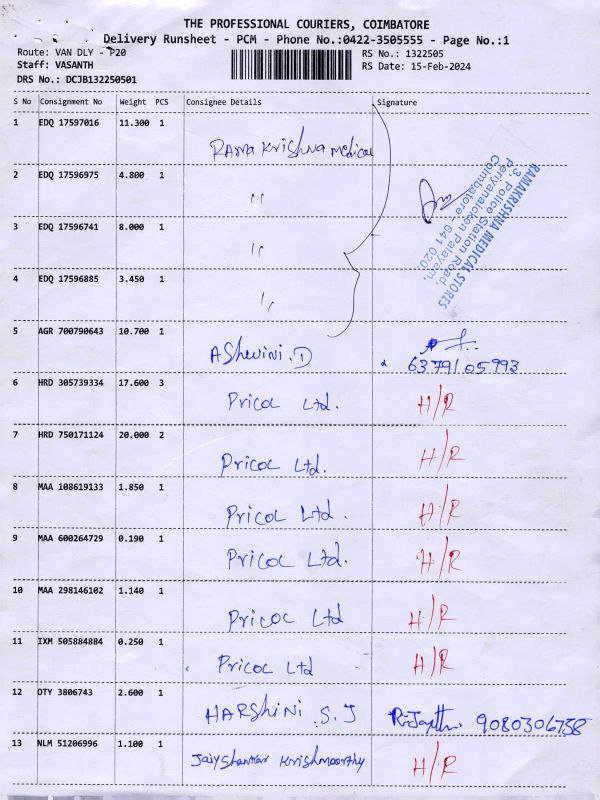 THE PROFESSIONAL COURIERS, COIMBATORE
Delivery Runsheet - PCM - Phone No.:0422-3505555 - Page No.:1
Route: VAN DLY - P20
RS No.: 1322505
Staff: VASANTH
RS Date: 15-Feb-2024
DRS No.: DCJB132250501
S No Consignment No Weight PCS Consignee Details Signature
1 EDQ 17597016 11.300 1 Rama Krishna Medical
2 EDQ 17596975 4.800 1 "
3 EDQ 17596741 8.000 1 "
4 EDQ 17596885 3.450 1 "
RAMAKRISHNA MEDICAL STORES
3, Police Station Road,
Periyanaicken Palayam,
Coimbatore - 641 020.
5 AGR 700790643 10.700 1 AShwini.D 63791 05993
6 HRD 305739334 17.600 3 Pricol Ltd. H/R
7 HRD 750171124 20.000 2 Pricol Ltd. H/R
8 MAA 108619133 1.850 1 Pricol Ltd. H/R
9 MAA 600264729 0.190 1 Pricol Ltd. H/R
10 MAA 298146102 1.140 1 Pricol Ltd H/R
11 IXM 505884884 0.250 1 Pricol Ltd H/R
12 OTY 3806743 2.600 1 HARShiNi S.J 9080306738
13 NLM 51206996 1.100 1 Jaiyshankar Krishmoorthy H/R